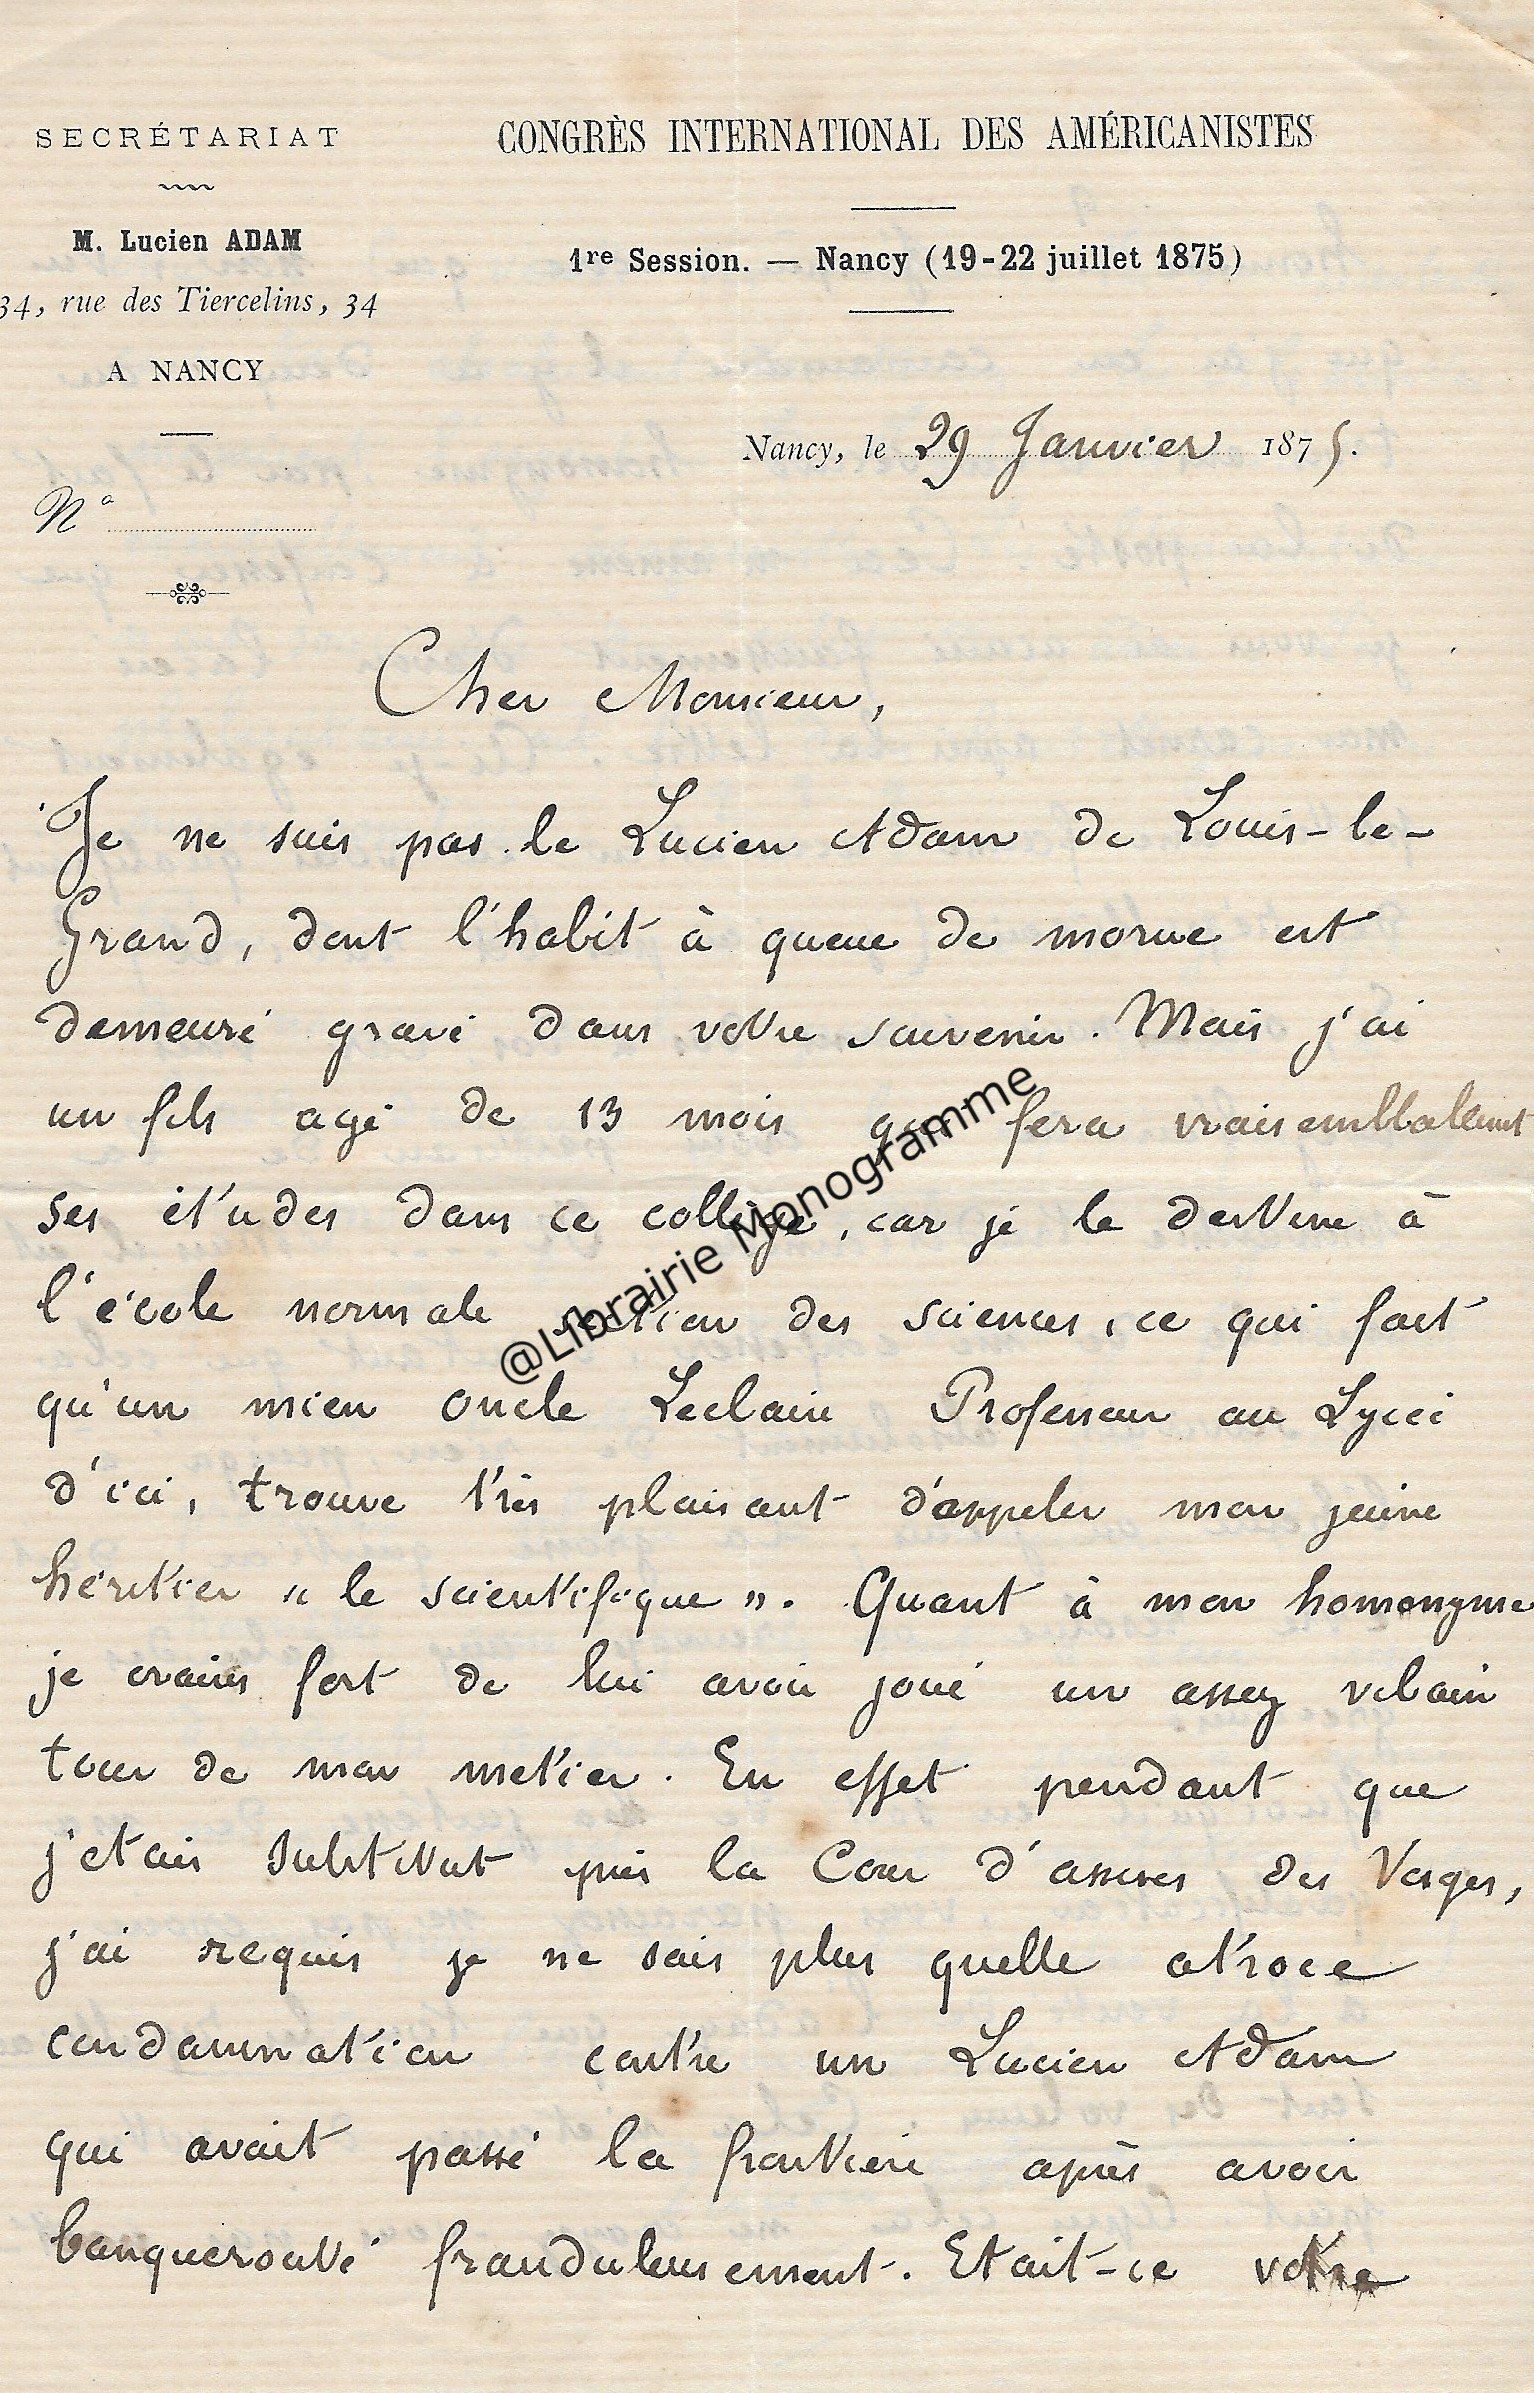 SECRÉTARIAT
M. Lucien ADAM
34, rue des Tiercelins, 34
A NANCY
N°
CONGRÈS INTERNATIONAL DES AMÉRICANISTES
1re Session. — Nancy (19-22 juillet 1875)
Nancy, le 29 Janvier 1875.
Cher Monsieur,
Je ne suis pas le Lucien Adam de Louis-le-
Grand, dont l'habit à queue de morue est
demeuré gravé dans votre souvenir. Mais j'ai
un fils agé de 13 mois qui fera vraisemblablement
ses études dans ce collège, car je le destine à
l'école normale section des sciences, ce qui fait
qu'un mien oncle Leclaire Professeur au Lycée
d'ici, trouve très plaisant d'appeler mon jeune
héritier « le scientifique ». Quant à mon homonyme
je crains fort de lui avoir joué un assez vilain
tour de mon metier. En effet pendant que
j'etais Substitut près la Cour d'assises des Vosges,
j'ai requis je ne sais plus quelle atroce
condamnation contre un Lucien Adam
qui avait passé la frontière après avoir
banqueroutté frauduleusement. Etait-ce votre
@Librairie Monogramme